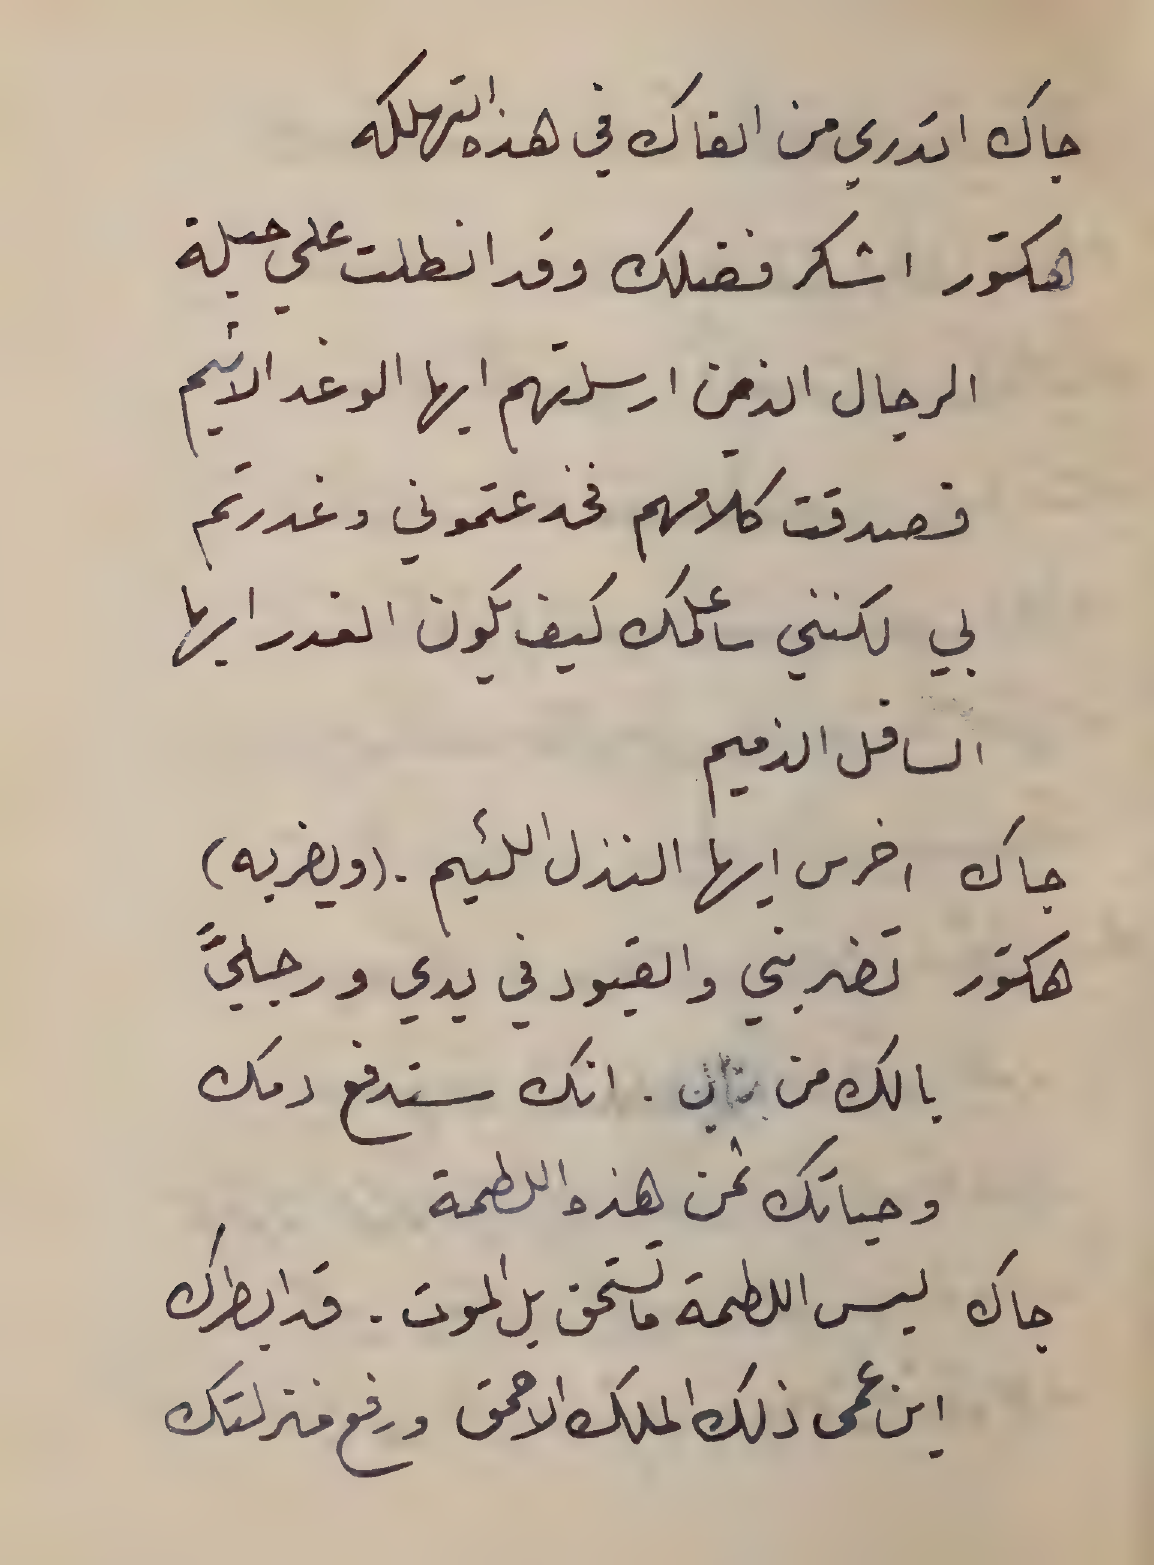 جاك اتدري من القاك في هذه التهلكه
هكتور اشكر فضلك وقد انطلت علي حيلة
الرجال الذين ارسلتهم ايها الوغد الاثيم
فصدقت كلامهم فخدعتموني وغدرتم
بي لكنني ساعلمك كيف يكون الغدر ايها
السافل الذميم
جاك اخرس ايها النذل اللئيم . (ويضربه)
هكتور تضربني والقيود في يدي ورجليَّ
يالك من . انك ستدفع دمك
وحياتك ثمن هذه اللطمة
جاك ليس اللطمة ما تستحق بل الموت . قد ابطرك
ابن عمى ذلك الملك الاحمق ورفع منزلتك